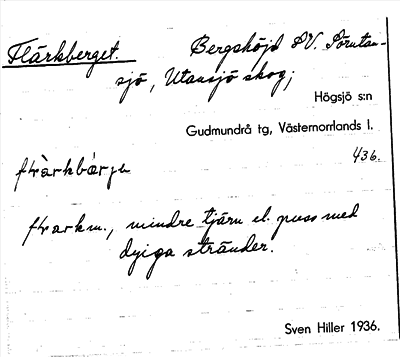 Flärkberget. Bergshöjd SV.Örutan-
sjö, Utansjö skog;
Högsjö s:n
Gudmundrå tg, Västernorrlands l.
436.
mindre tjärn el. puss med
dyiga stränder.
Sven Hiller 1936.